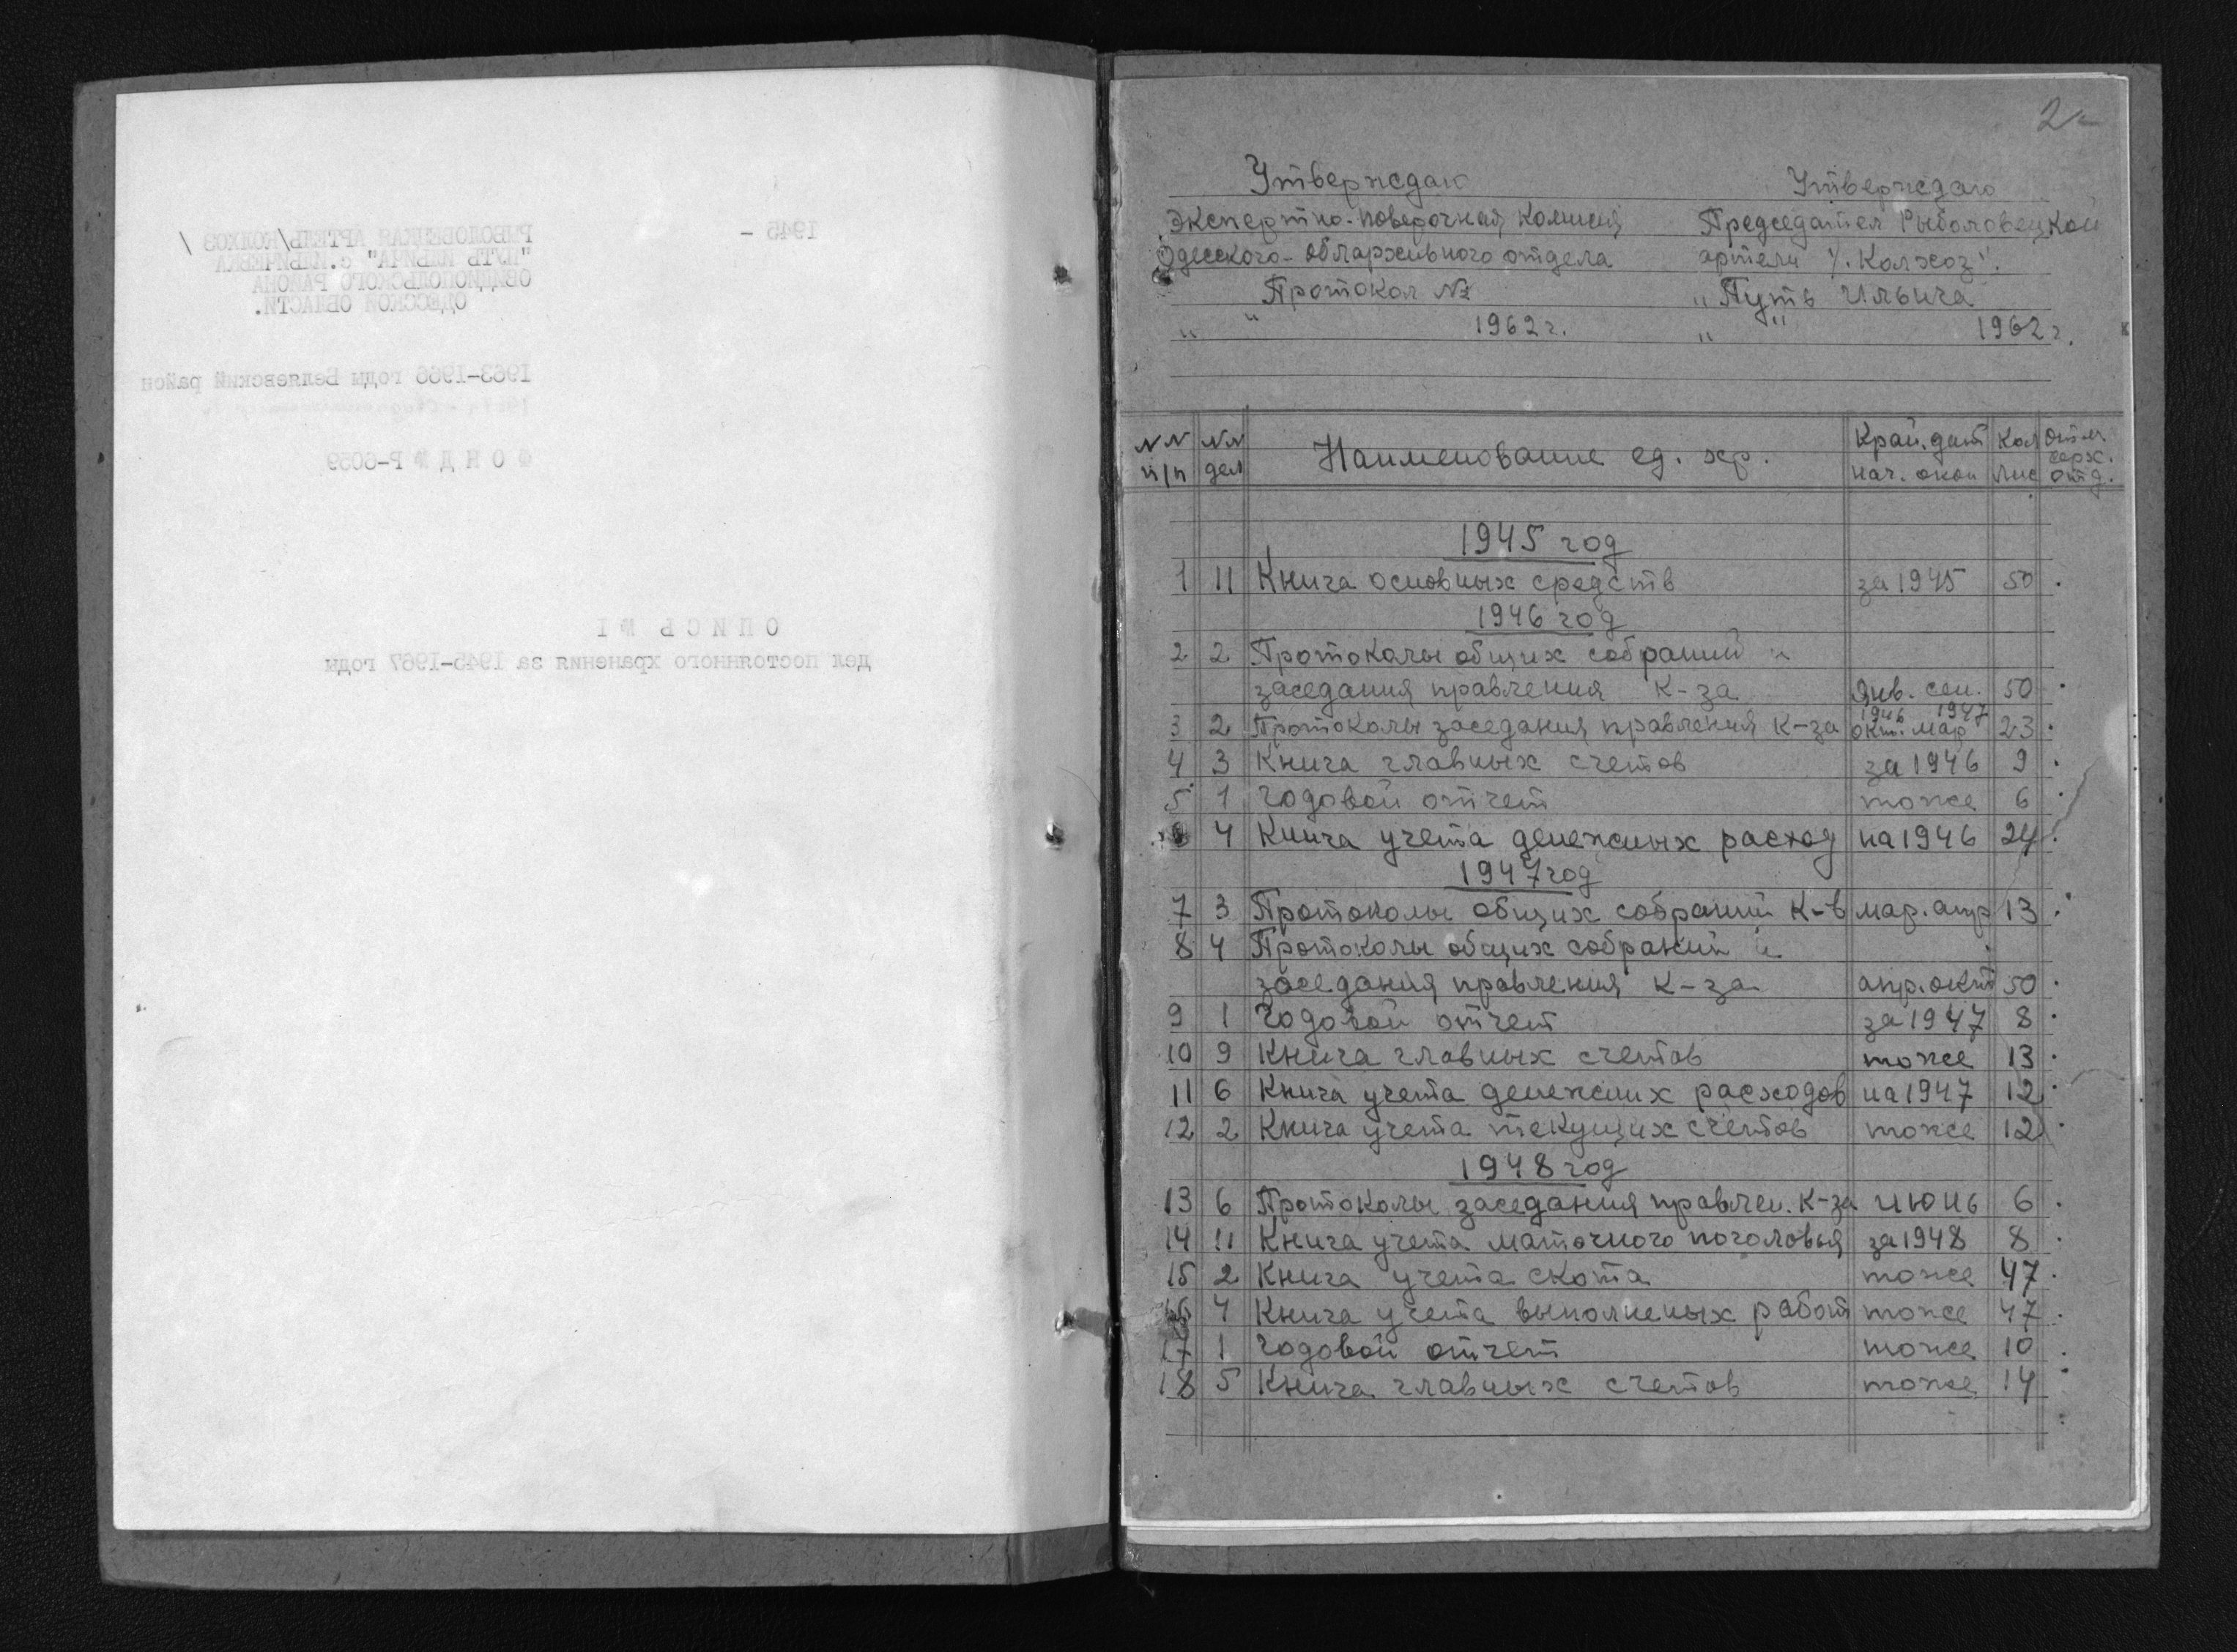 РЫБОЛОВЕЦКАЯ АРТЕЛЬ/КОЛХОЗ /
"ПУТЬ ИЛЬИЧА" с. ИЛЬИЧЕВКА
ОВИДИОПОЛЬСКОГО РАЙОНА
ОДЕССКОЙ ОБЛАСТИ.
1945 -
1963-1966 годы Беляевский район
Ф О Н Д № Р-6059
О П И С Ь № I
дел постоянного хранения за 1945-1967 годы
2
Утверждаю
Экспертно-поверочная комисия
Одесского-облархивного отдела
Протокол №
" " 1962 г.
Утверждаю
Председател Рыболовецкой
артели /. Колхоз".
"Путь Ильича
" " 1962 г.
NN п/п NN дел Наименование ед. хр. Край. дат нач. окон Кол лис
1945 год
1 11 Книга основных средств за 1945 50
1946 год
2 2 Протоколы общих собраний и
заседания правления к-за Янв. сен. 50
3 2 Протоколы заседания правления к-за 1946 1947 окт. мар 23
4 3 Книга главных счетов за 1946 9
5 1 Годовой отчет тоже 6
4 Книга учета денежных расход на 1946 24
1947 год
7 3 Протоколы общих собраний к-в мар. апр 13
8 4 Протоколы общих собраний и
заседания правления к-за апр. окт 50
9 1 Годовой отчет за 1947 8
10 9 Книга главных счетов тоже 13
11 6 Книга учета денежних расходов на 1947 12
12 2 Книга учета текущих счетов тоже 12
1948 год
13 6 Протоколы заседания правлен. к-за июнь 6
14 11 Книга учета маточного поголовья за 1948 8
15 2 Книга учета скота тоже 47
16 4 Книга учета выполненых работ тоже 47
17 1 Годовой отчет тоже 10
18 5 Книга главных счетов тоже 14